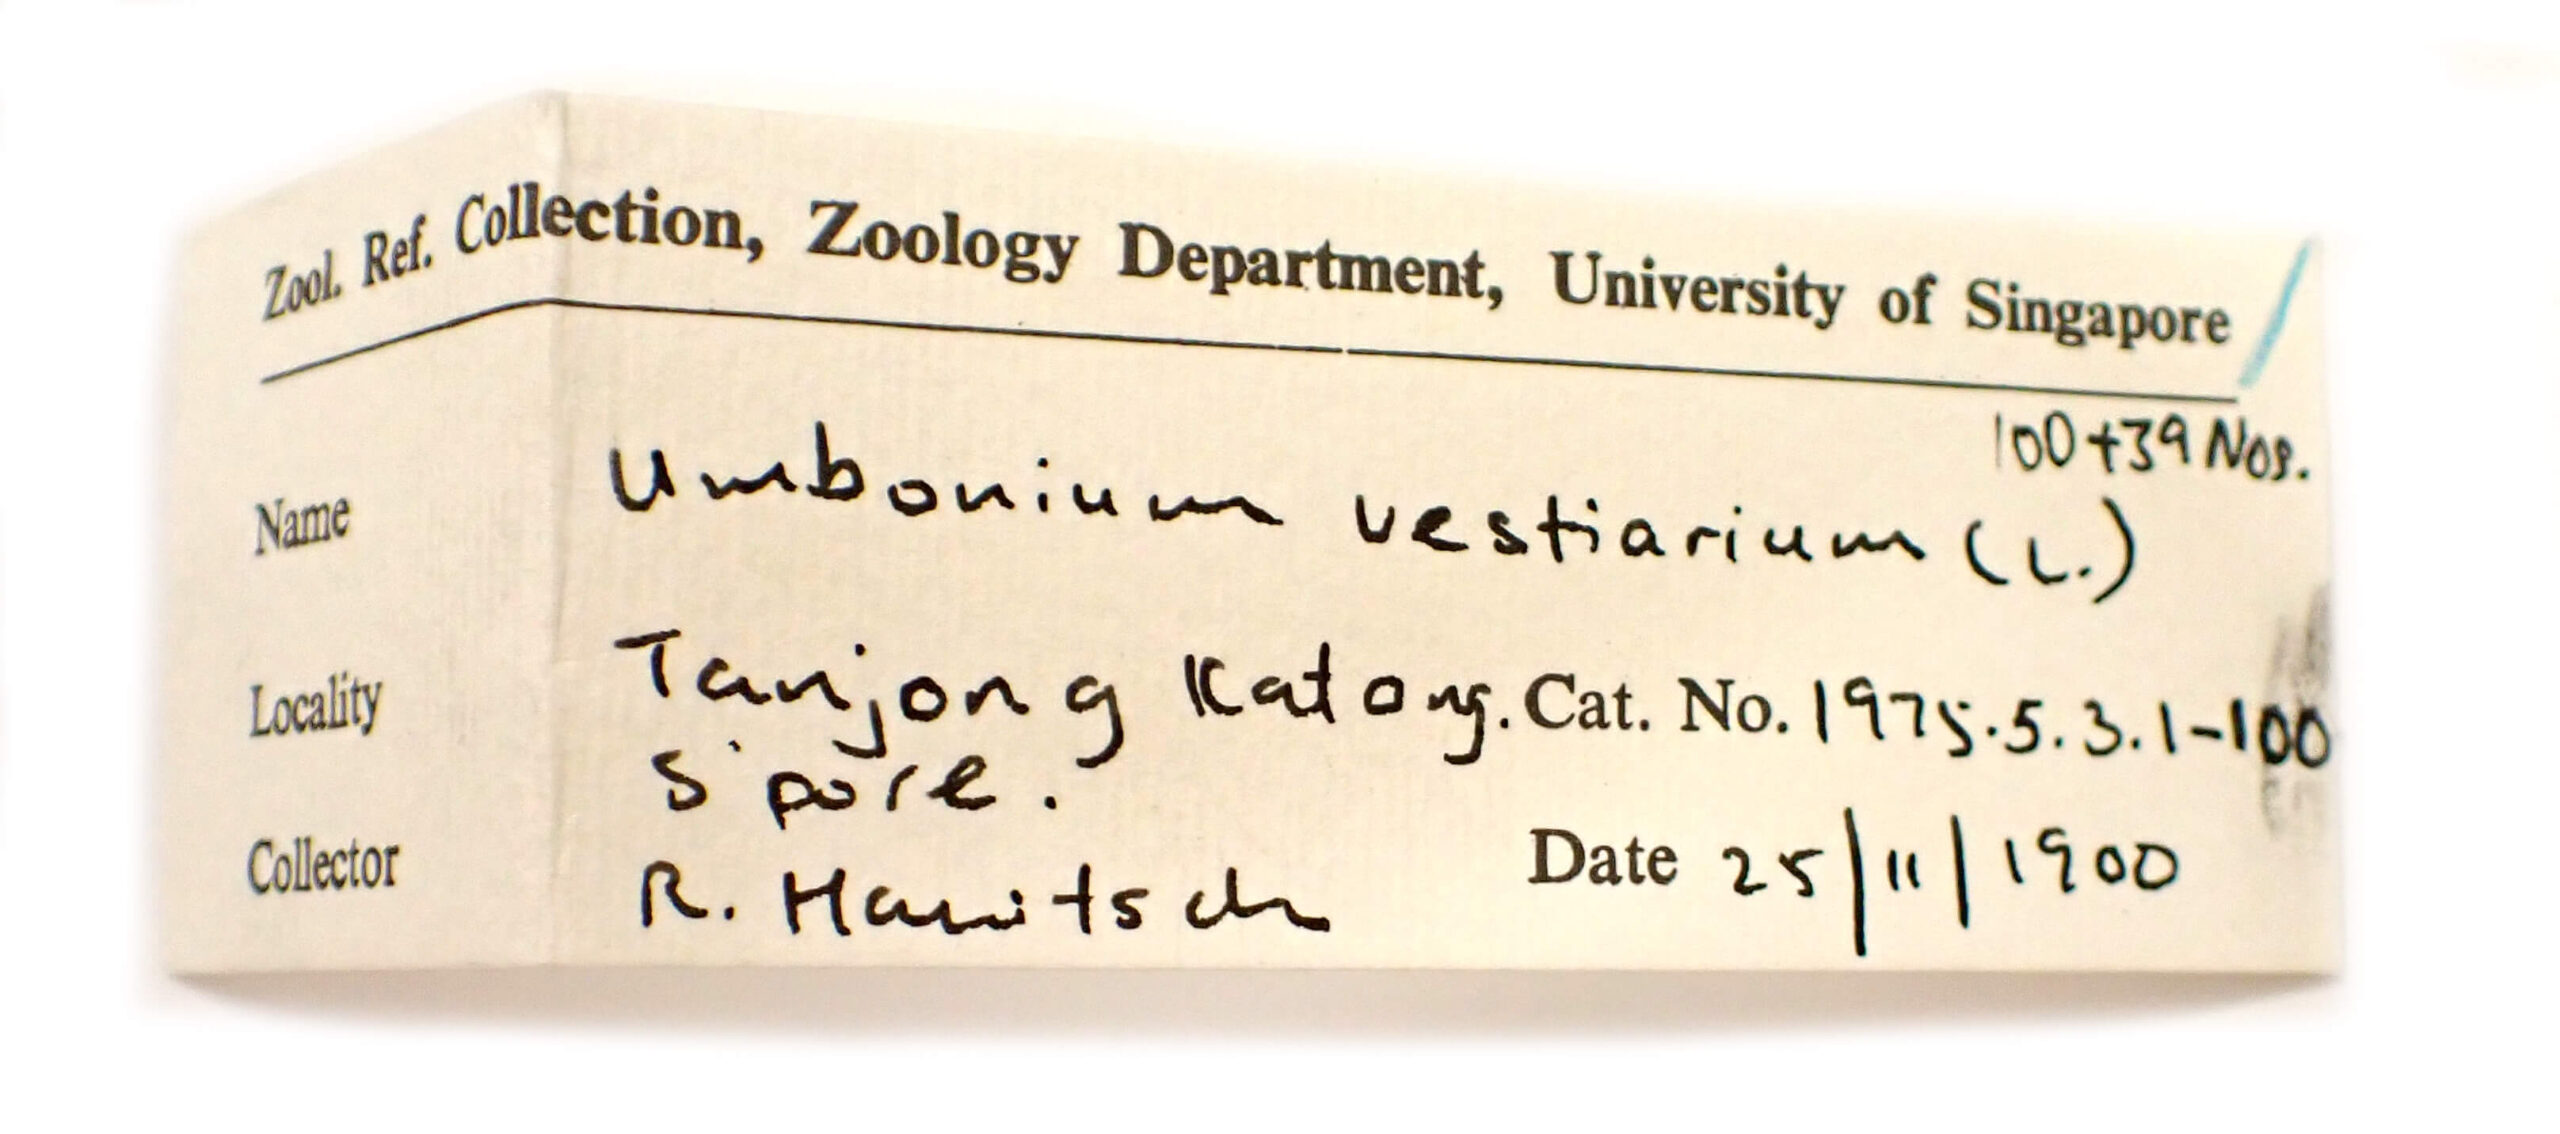 Zool. Ref. Collection, Zoology Department, University of Singapore
100+39 Nos.
Name Umbonium vestiarium (L.)
Locality Tanjong Katong. Cat. No. 1975.5.3.1-100
S'pore.
Collector R. Hanitsch Date 25/11/1900